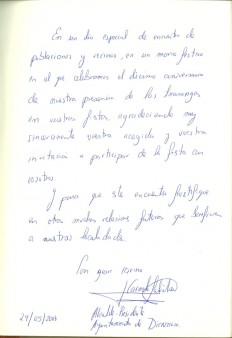 En un día especial de encuentro de
poblaciones y vecinos, en un marco festivo
en el que celebramos el décimo aniversario
de nuestra presencia de los
en vuestras fiestas, agradeciendo muy
sinceramente vuestra acogida y vuestra
invitación a participar de la fiesta con
vosotros.
Y para que este encuentro fructifique
en otras muchas relaciones futuras que
a nuestras localidades.
Con gran cariño
Alcalde-Presidente
Ayuntamiento de